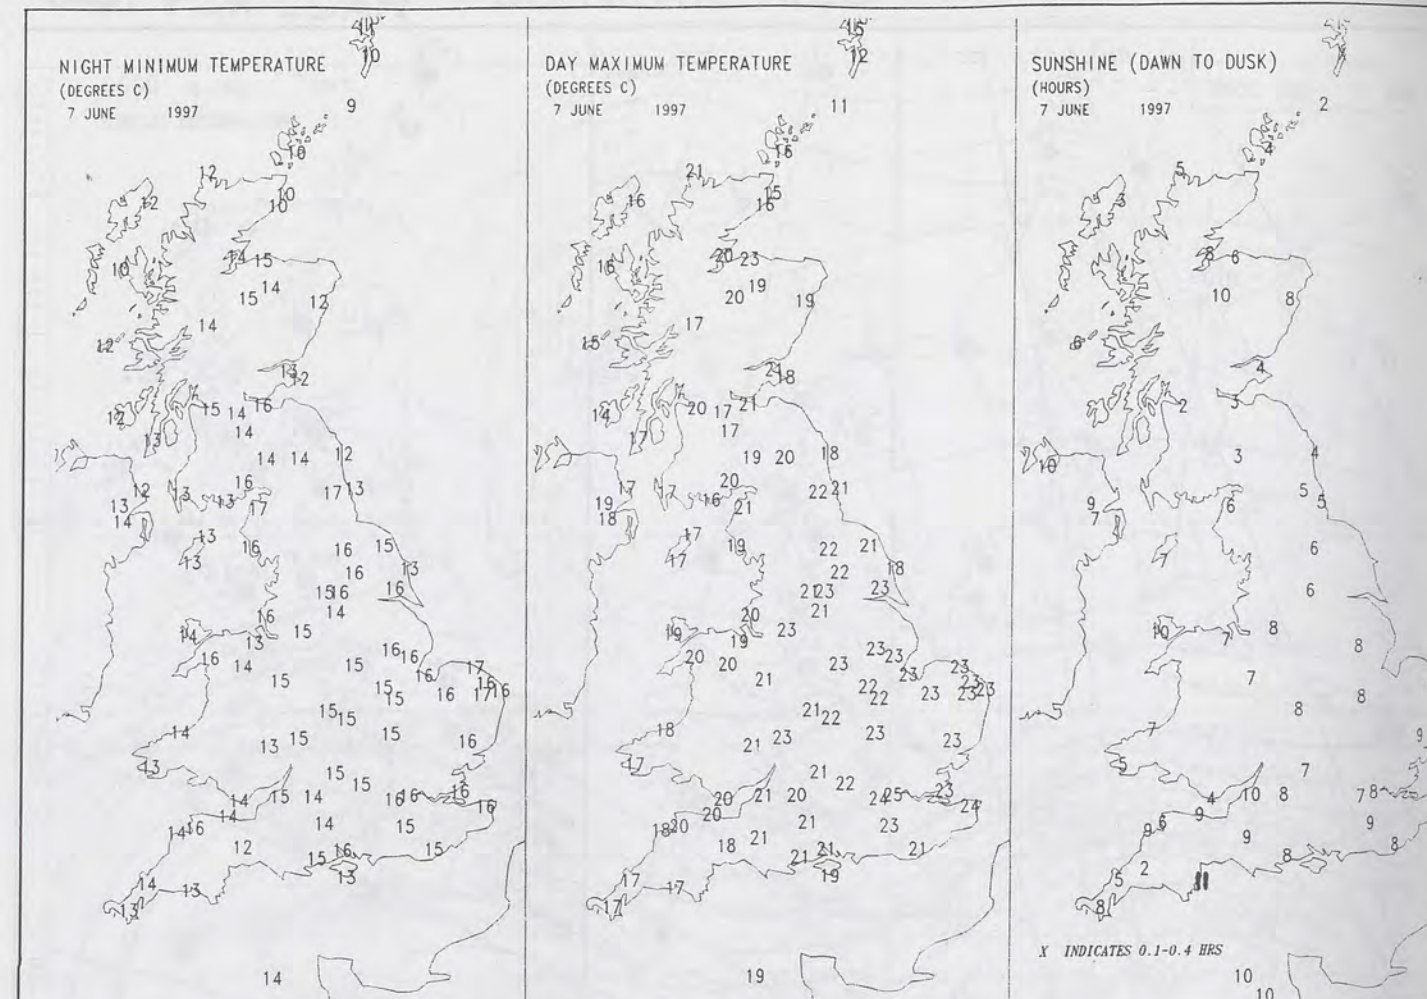 NIGHT MINIMUM TEMPERATURE
(DEGREES C)
7 JUNE 1997
10
9
10
12
10
12
10
14 15
10
14
15 12
14
12
13
12
16
15 14
12
14
13
12
14 14
16
12 13 17 13
13 13 17
14
13
16 16 15
13
16 13
15 16 16
14
16
14 13 15
16 16
16 14 15 17
15 16 16
15 16 17 16
15
15 15
14 15
13 15 16
13
15
15
14 15 14 16 16 16
14 16
14 16 14 15
12 15 16 15
14 13 13
13
14
DAY MAXIMUM TEMPERATURE
(DEGREES C)
7 JUNE 1997
15
12
11
16
21
15
16 16
20 23
16
19
20 19
17
15
21
18
20 17 21
14
17
17
19 20 18
20
17 17 22 21
19 16 21
18
17
19 22 21
17
22 18
21 23 23
20 21
19 19 23
23 23
20 20 23 23
21 23 23
22 23 23 23
22
21 22
18 21 23 23
17
21
22
20 21 20 24 25 23
20 24
18 20 21 23
18 21 21 21 21
17 17 19
17
19
SUNSHINE (DAWN TO DUSK)
(HOURS)
7 JUNE 1997
2
4
5
3
8 6
10 8
6
4
2 3
10 3 4
5
9 6 5
7
7 6
6
10 7 8
8
7
8
8
7
9
5
7
4 10 8 7 8
6 9
9 9 9
8 8
5 2
8
X INDICATES 0.1-0.4 HRS
10
10